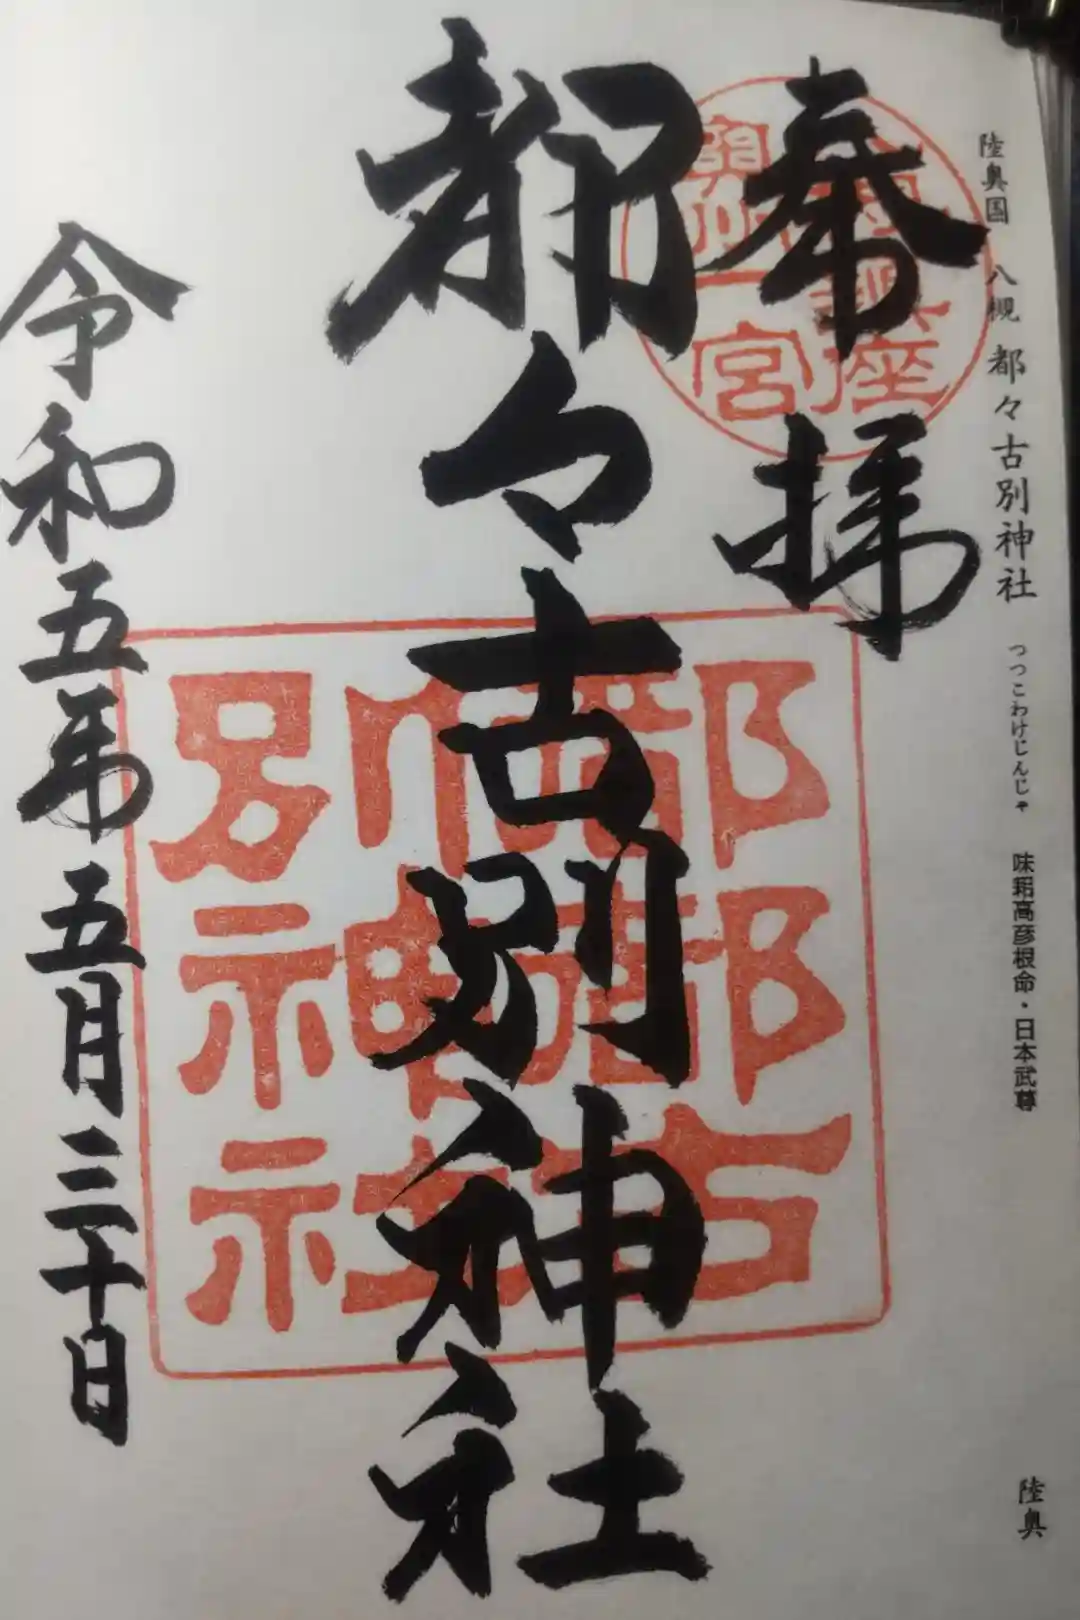 陸奥国 八槻 都々古別神社 つつこわけじんじゃ 味耜高彦根命・日本武尊 陸奥
奉拝
奥州一宮
都々古別神社
都都古別神社
令和五年五月三十日